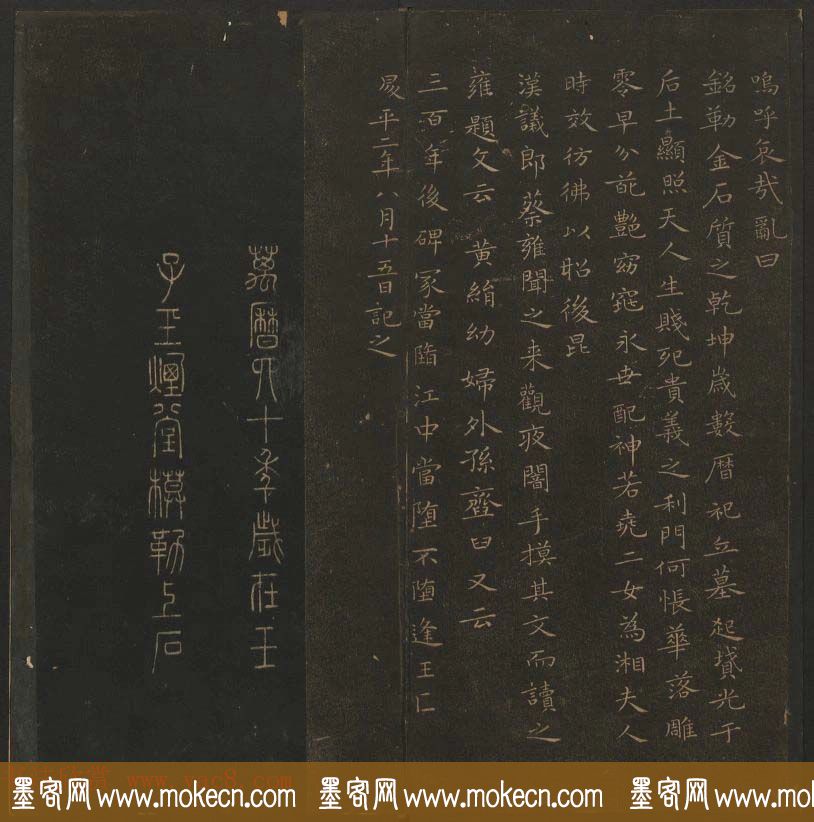 嗚呼哀哉亂曰
銘勒金石質之乾坤歲數曆祀立墓起墳光于
后土顯照天人生賤死貴義之利門何悵華落雕
零早分葩艷窈窕永世配神若堯二女為湘夫人
時效彷彿以昭後昆
漢議郎蔡雍聞之来觀夜闇手摸其文而讀之
雍題文云黃絹幼婦外孫齏臼又云
三百年後碑冢當墮江中當墮不墮逢王仁
昇平二年八月十五日記之
萬曆四十年歲在壬
子玉煙堂模勒上石
www.yac8.com
墨客网 www.mokecn.com 墨客网 www.mokecn.com 墨客网 www.mokecn